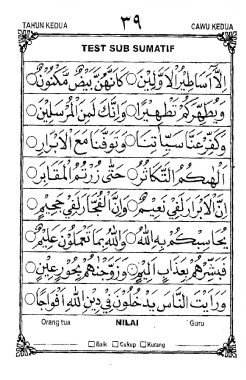 TAHUN KEDUA ٣٩ CAWU KEDUA
TEST SUB SUMATIF
اِلَّآ اَسَاطِيْرُ الْاَوَّلِيْنَ ○ كَاَنَّهُنَّ بَيْضٌ مَّكْنُوْنٌ ○
وَيُطَهِّرَكُمْ تَطْهِيْرًا ○ وَاِنَّكَ لَمِنَ الْمُرْسَلِيْنَ ○
وَكَفِّرْ عَنَّا سَيِّاٰتِنَا ○ وَتَوَفَّنَا مَعَ الْاَبْرَارِ ○
اَلْهٰىكُمُ التَّكَاثُرُ ○ حَتّٰى زُرْتُمُ الْمَقَابِرَ ○
اِنَّ الْاَبْرَارَ لَفِيْ نَعِيْمٍ ○ وَاِنَّ الْفُجَّارَ لَفِيْ جَحِيْمٍ ○
يُحَاسِبْكُمْ بِهِ اللّٰهُ ○ وَاللّٰهُ بِمَا تَعْمَلُوْنَ عَلِيْمٌ ○
فَبَشِّرْهُمْ بِعَذَابٍ اَلِيْمٍ ○ وَزَوَّجْنٰهُمْ بِحُوْرٍ عِيْنٍ ○
وَرَاَيْتَ النَّاسَ يَدْخُلُوْنَ فِيْ دِيْنِ اللّٰهِ اَفْوَاجًا ○
Orang tua NILAI Guru
□ Baik □ Cukup □ Kurang